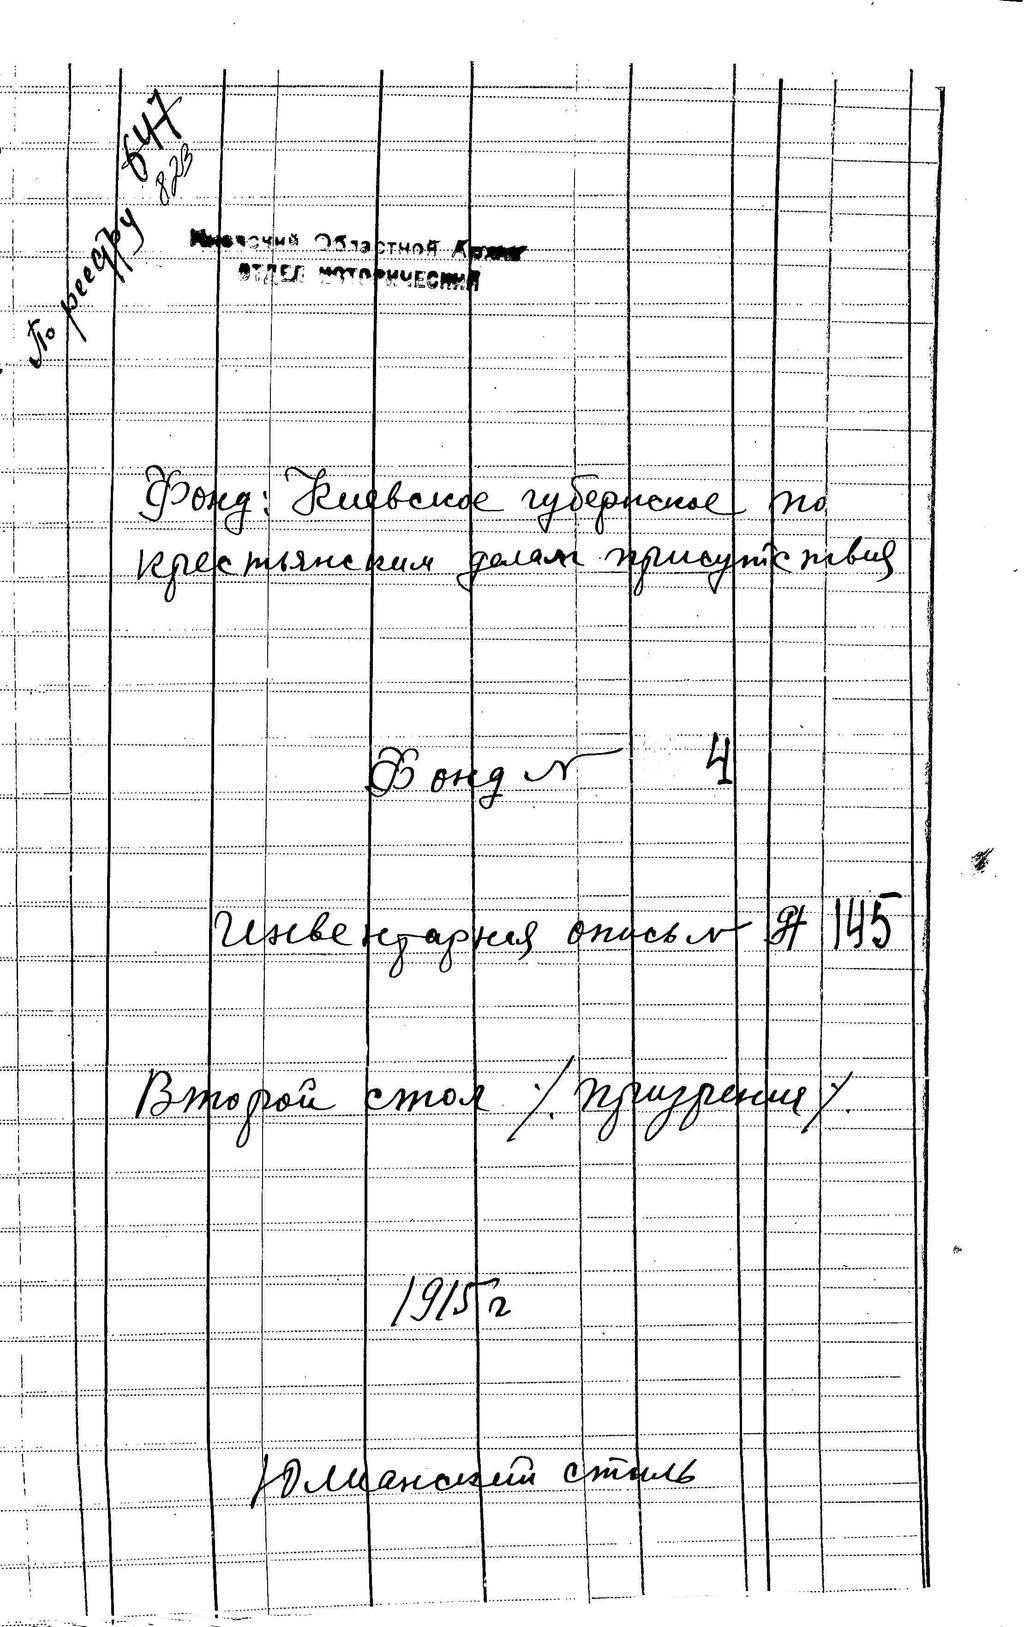 По реестру 647
823
Киевский Областной Архив
ОТДЕЛ ИСТОРИЧЕСКИЙ
Фонд: Киевское губернское по
крестьянским делам присутствия
Фонд № 4
Инвентарная опись № 145
Второй стол /. призрения /.
1915 г
Юлианский стиль